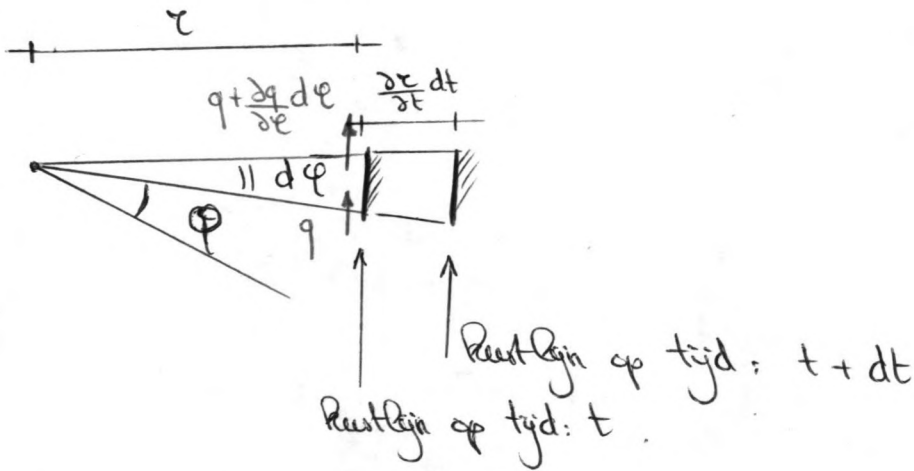 r
q+∂q/∂φ dφ
∂r/∂t dt
dφ
φ
q
kustlijn op tijd: t + dt
kustlijn op tijd: t